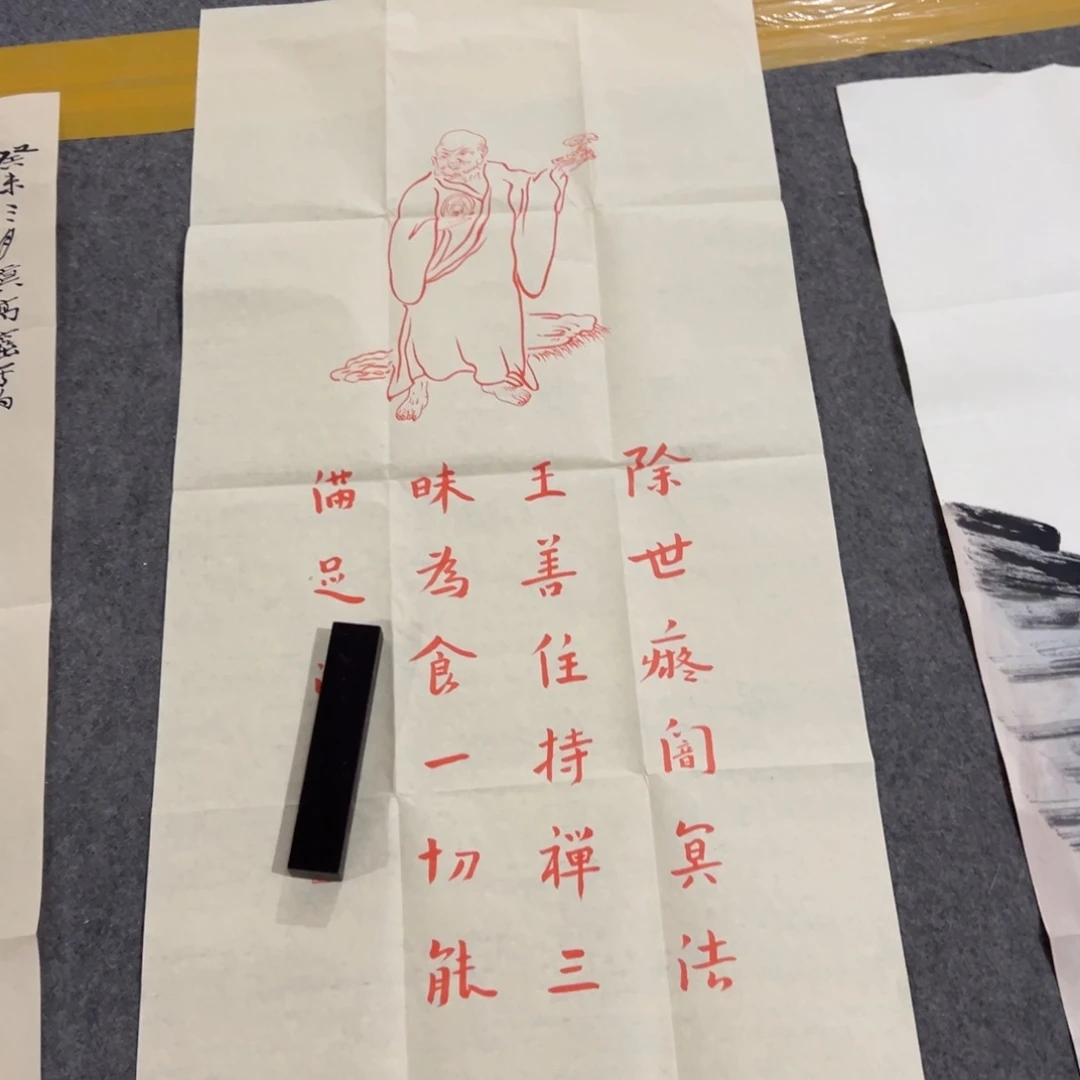 除世癡闇冥法
王善住持禪三
昧為食一切能
滿足
癸未三月